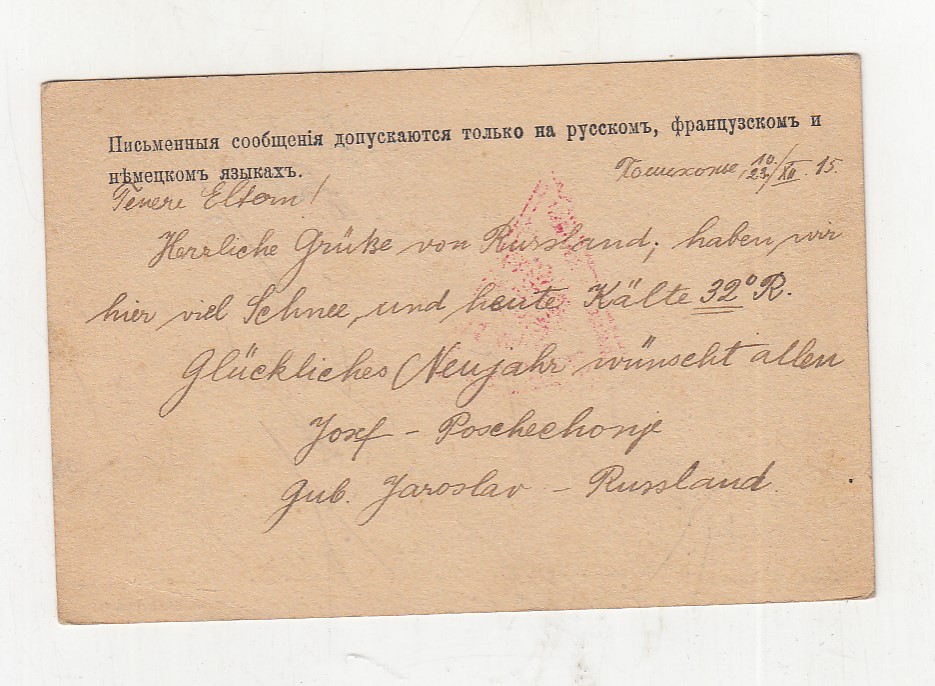 Письменныя сообщенія допускаются только на русскомъ, французскомъ и
нѣмецкомъ языкахъ.
Пошехонье, 10/23/XII. 15.
Teuere Eltern!
Herzliche Grüße von Russland; haben wir
hier viel Schnee, und heute Kälte 32° R.
Glückliches Neujahr wünscht allen
Josef – Poschechonje
Gub. Jaroslav – Russland.